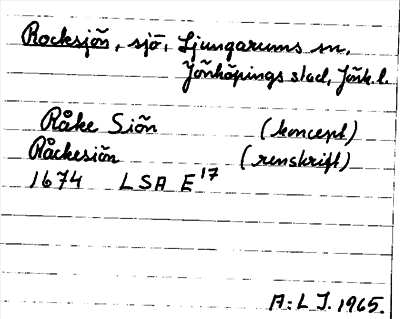 Rocksjön, sjö, Ljungarums sn,
Jönköpings stad, Jönk. l.
Råke Siön (koncept)
Råckesiön (renskrift)
1674 LSA E17
A:L J. 1965.